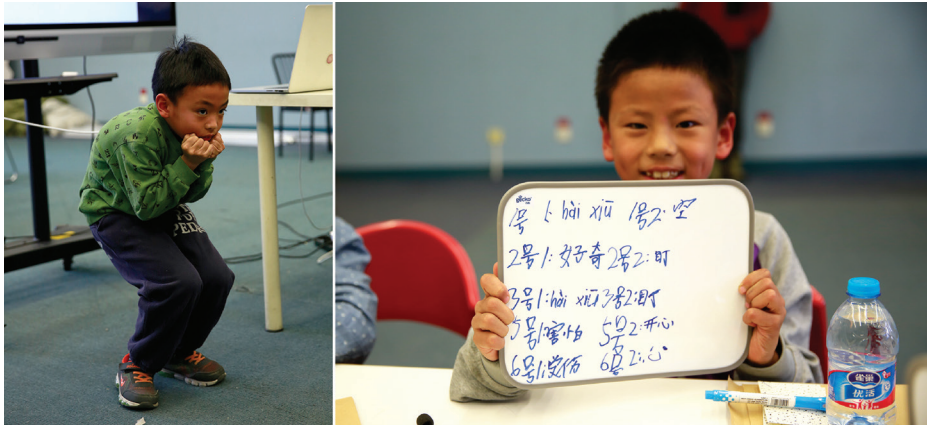 1号 1: hài xiū 1号2: 空
2号1: 好奇 2号2: 盯
3号1: hài xiū 3号2: 盯
5号1: 害怕 5号2: 开心
6号1: 受伤 6号2: 心
雀巢
优活